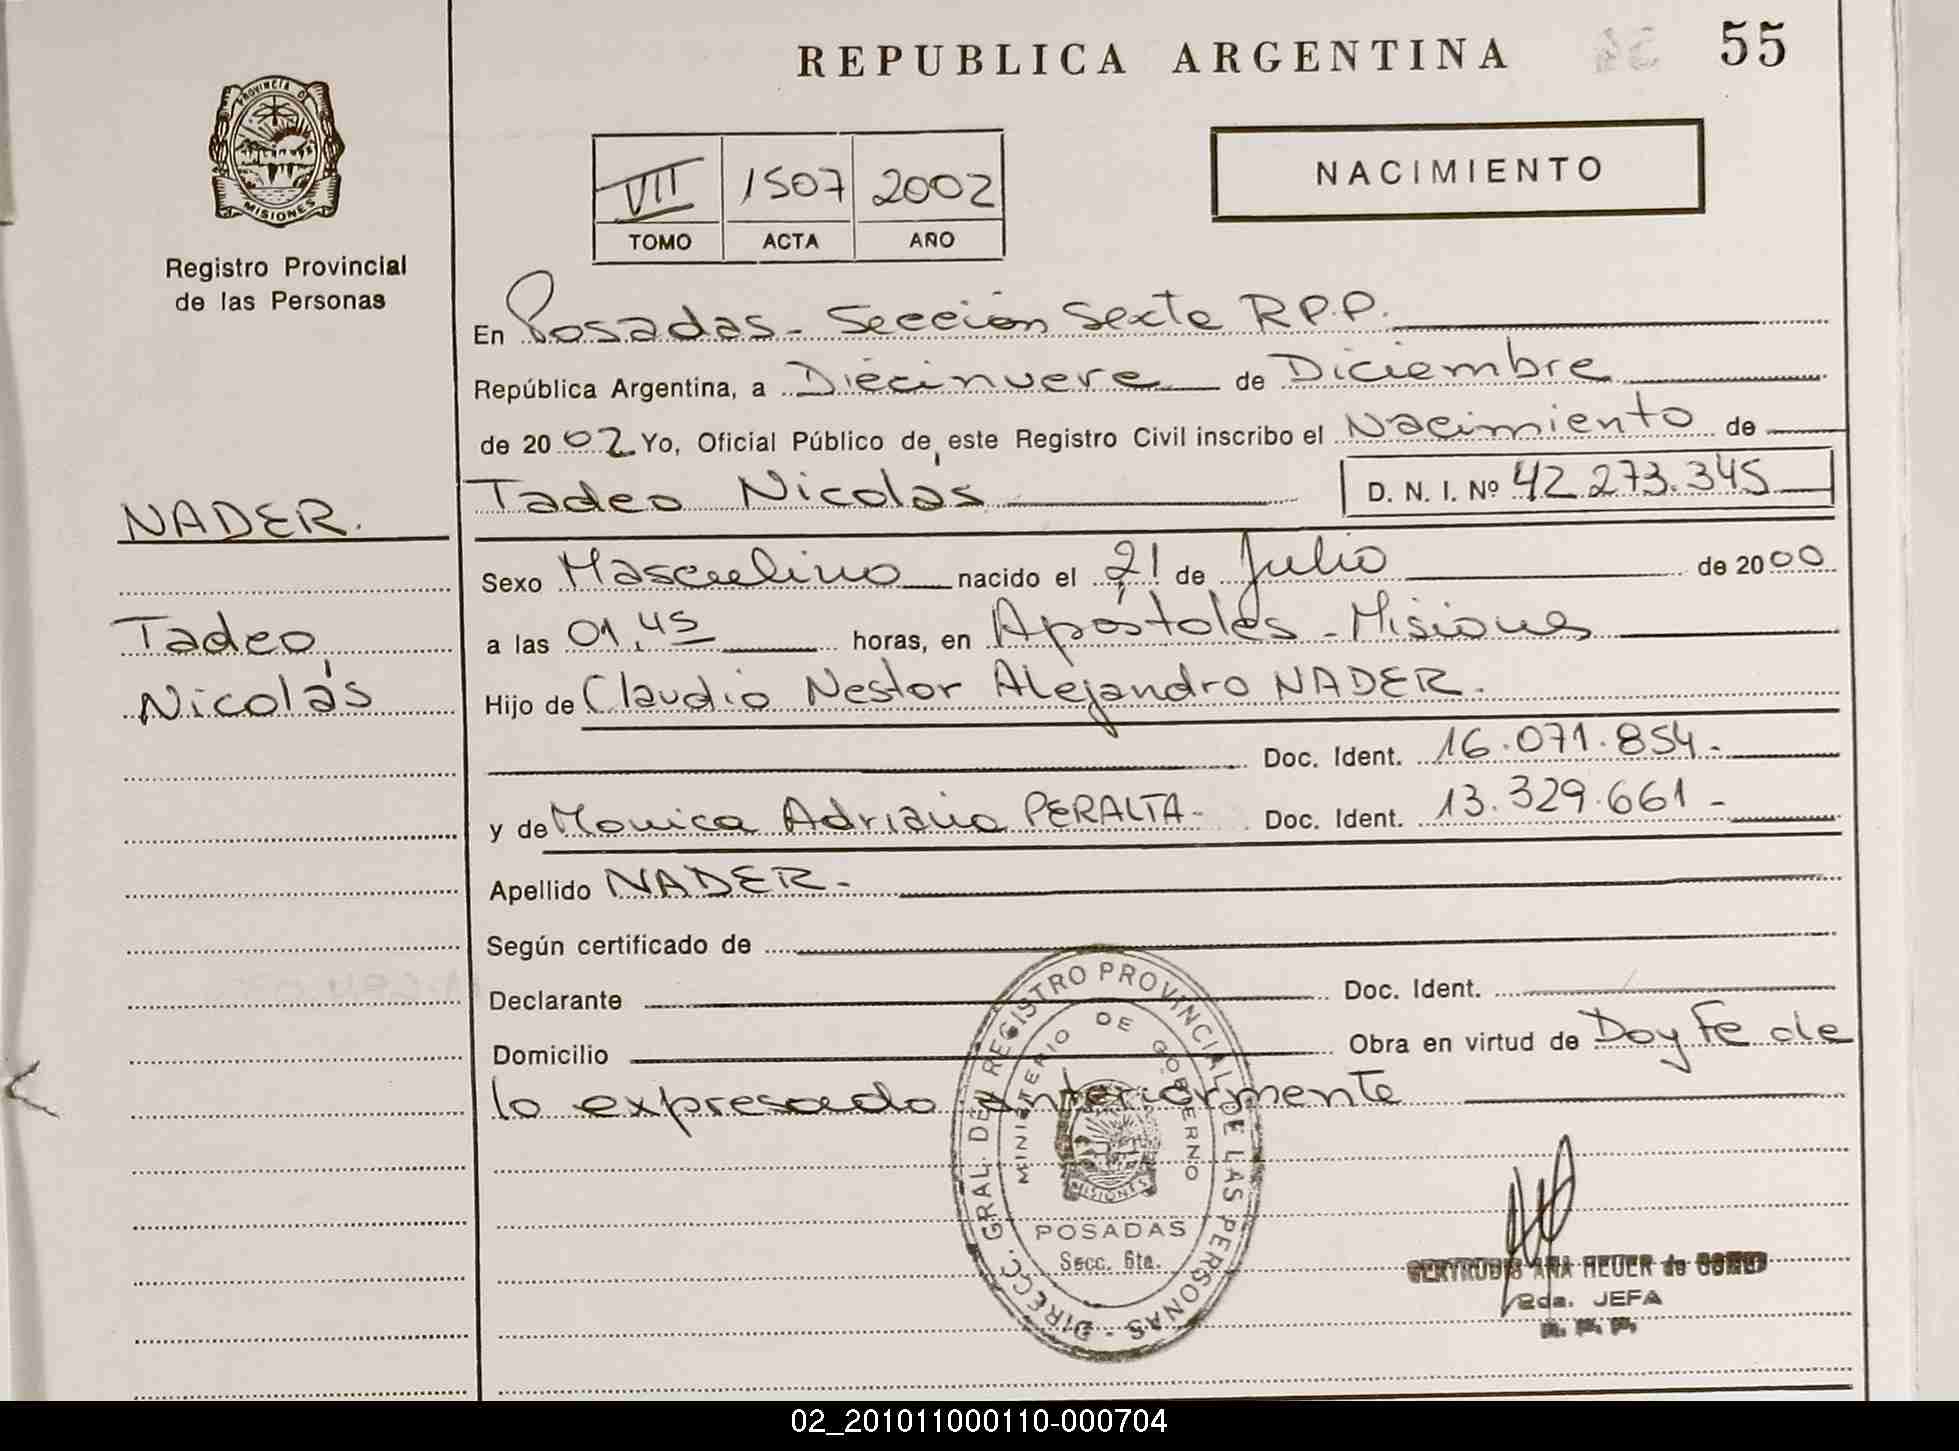 REPUBLICA ARGENTINA
55
PROVINCIA DE
MISIONES
Registro Provincial
de las Personas
VII 1507 2002
TOMO ACTA AÑO
NACIMIENTO
En Posadas - Sección Sexta R.P.P.
República Argentina, a Diecinueve de Diciembre
de 2002 Yo, Oficial Público de este Registro Civil inscribo el Nacimiento de
Tadeo Nicolás
D. N. I. Nº 42.273.345
NADER.
Sexo Masculino nacido el 21 de Julio de 2000
Tadeo
a las 01,45 horas, en Apóstoles - Misiones
Nicolás
Hijo de Claudio Nestor Alejandro NADER.
Doc. Ident. 16.071.854.-
y de Monica Adriana PERALTA - Doc. Ident. 13.329.661 -
Apellido NADER.-
Según certificado de
Declarante Doc. Ident.
Domicilio Obra en virtud de Doy Fe de
lo expresado anteriormente
DIRECC. GRAL. DEL REGISTRO PROVINCIAL DE LAS PERSONAS -
MINISTERIO DE GOBIERNO
MISIONES
POSADAS
Secc. 6ta.
GERTRUDIS ANA HEUER de
2da. JEFA
R. P. P.
02_201011000110-000704